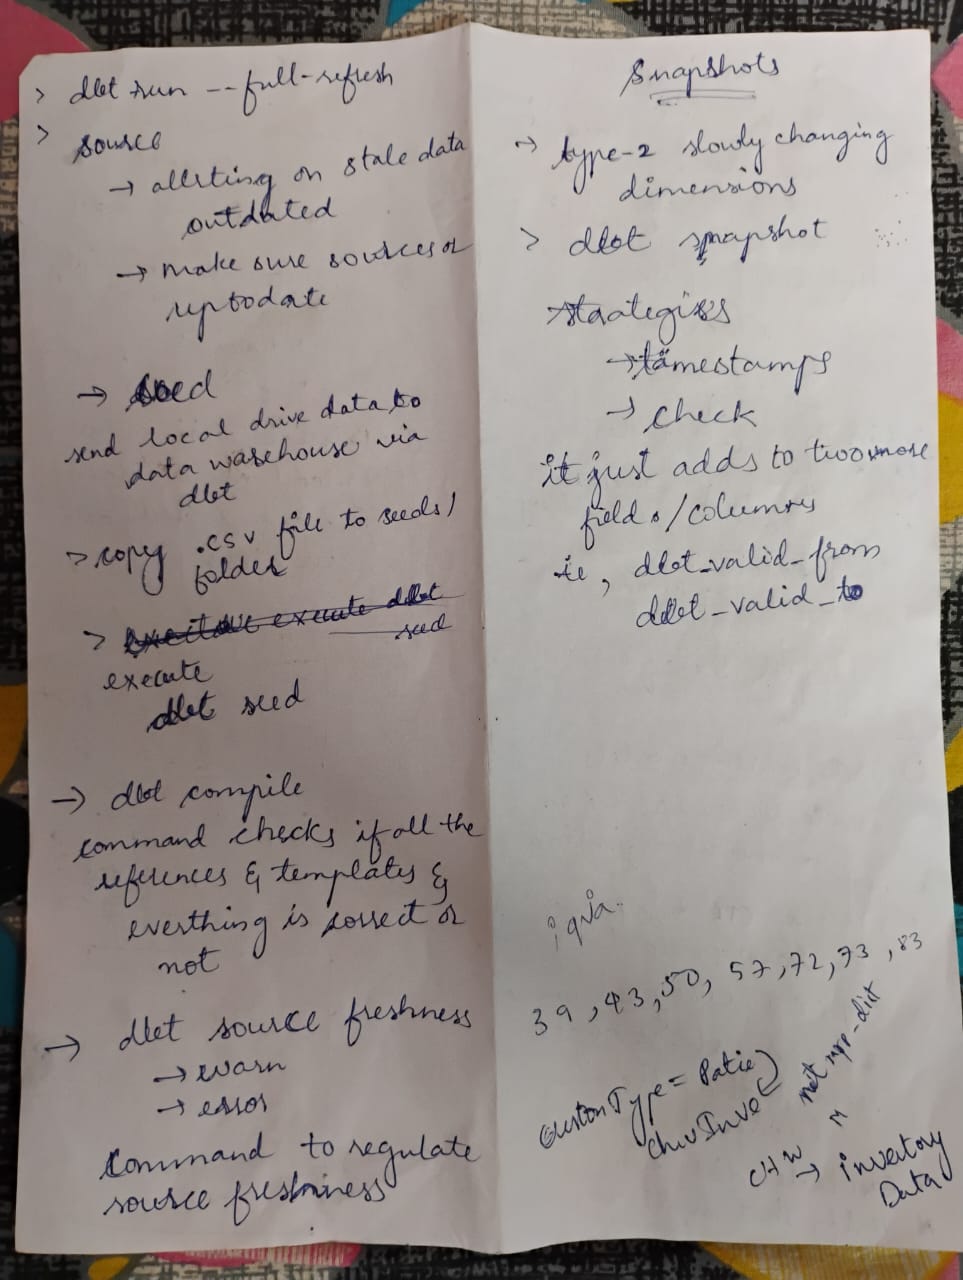 > dbt run --full-refresh
> source
→ allerting on stale data
outdated
→ make sure sources or
uptodate
→ seed
send local drive data to
data warehouse via
dbt
> copy .csv file to seeds/
folder
> execute dbt
seed
execute
dbt seed
→ dbt compile
command checks if all the
references & templates &
everthing is correct or
not
→ dbt source freshness
→ warn
→ error
Command to regulate
source freshness
Snapshots
→ type-2 slowly changing
dimensions
> dbt snapshot
strategies
→ timestamps
→ check
it just adds to two more
fields/columns
ie, dbt_valid_from
dbt_valid_to
iqvia
39, 43, 50, 57, 72, 73, 83
Type = Patie
→ inventory
Data